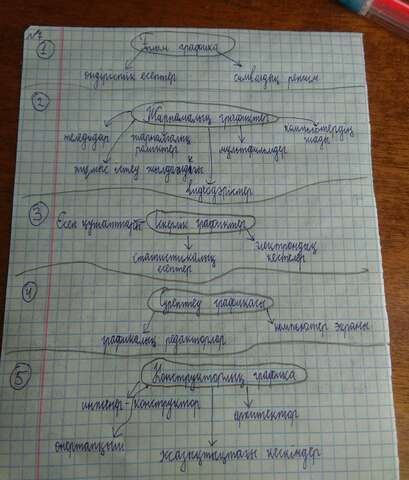 №7
① Ғылым графика
өндірістік есептер
символдық режим
②
Жарнамалық графиктер
теледидар
жарнамалық роликтер
компьютердің жады
жұмыс істеу жылдамдығы
мультфильмдер
видеодәрістер
③
Есеп құжаттары
Іскерлік графиктер
статистикалық есептер
электрондық кестелер
4
Суреттеу графикасы
графикалық редакторлер
компьютер экраны
⑤ Конструкторлық графика
инженер-конструктор
архитектор
өнертапқыш
жазықтықтағы кескіндер